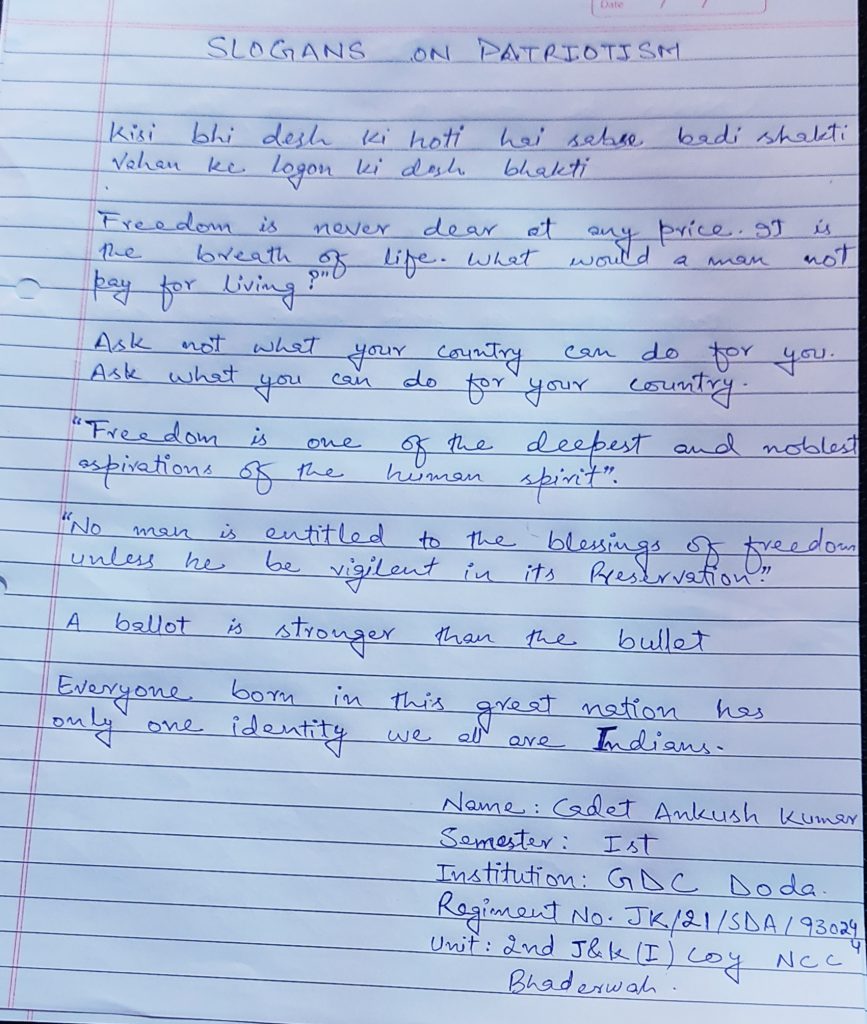 Date / /
SLOGANS ON PATRIOTISM
Kisi bhi desh ki hoti hai sabse badi shakti
Vahan ke logon ki desh bhakti
Freedom is never dear at any price. It is
the breath of life. What would a man not
pay for living?"
Ask not what your country can do for you.
Ask what you can do for your country.
"Freedom is one of the deepest and noblest
aspirations of the human spirit".
"No man is entitled to the blessings of freedom
unless he be vigilent in its Preservation."
A ballot is stronger than the bullet
Everyone born in this great nation has
only one identity we all are Indians.
Name: Cadet Ankush Kumar
Semester: Ist
Institution: GDC Doda.
Regiment No. JK/21/SDA/930244
Unit: 2nd J&K (I) Coy NCC
Bhaderwah.